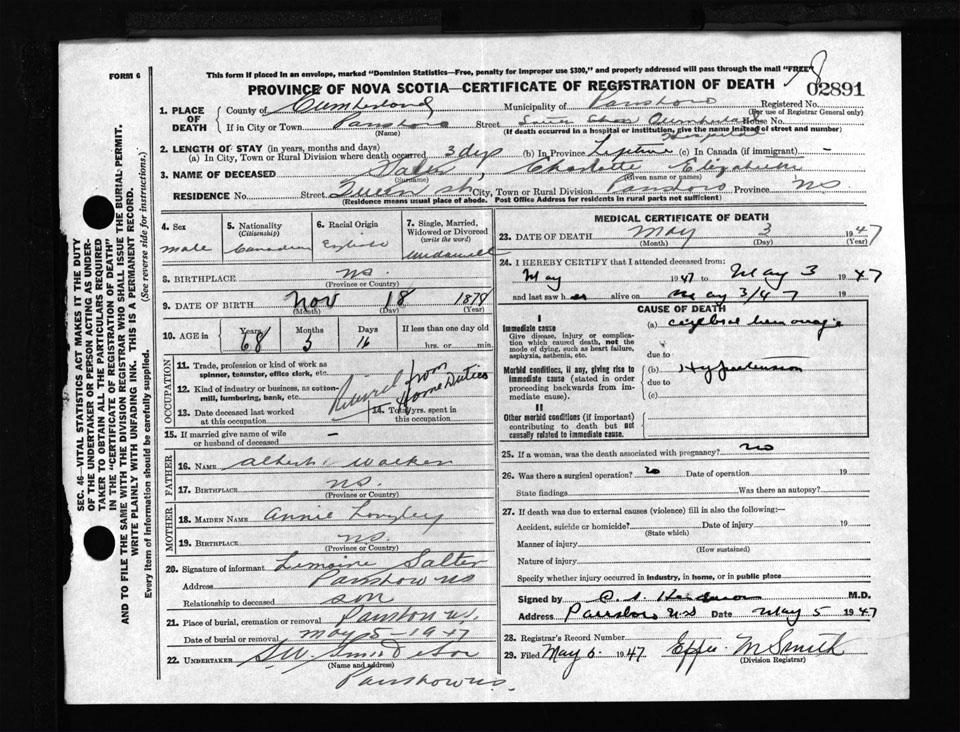 FORM 6
This form if placed in an envelope, marked "Dominion Statistics—Free, penalty for improper use $300," and properly addressed will pass through the mail "FREE"
PROVINCE OF NOVA SCOTIA—CERTIFICATE OF REGISTRATION OF DEATH
02891
1. PLACE OF DEATH
County of Cumberland Municipality of Parrsboro Registered No.
(For use of Registrar General only)
If in City or Town Parrsboro Street House No.
(Name) (If death occurred in a hospital or institution, give the name instead of street and number)
Hospital
2. LENGTH OF STAY (in years, months and days)
(a) In City, Town or Rural Division where death occurred 3 days (b) In Province Lifetime (c) In Canada (if immigrant) -
3. NAME OF DECEASED Salter, Charlotte Elizabeth
(Surname) (Given name or names)
RESIDENCE No. Street Queen St, City, Town or Rural Division Parrsboro Province N.S.
(Residence means usual place of abode. Post Office Address for residents in rural parts not sufficient)
4. Sex
male
5. Nationality
(Citizenship)
Canadian
6. Racial Origin
English
7. Single, Married, Widowed or Divorced
(write the word)
8. BIRTHPLACE N.S.
(Province or Country)
9. DATE OF BIRTH Nov 18 1878
(Month) (Day) (Year)
10. AGE in Years Months Days If less than one day old
68 5 16 hrs. or min.
OCCUPATION
11. Trade, profession or kind of work as spinner, teamster, office clerk, etc.
12. Kind of industry or business, as cotton-mill, lumbering, bank, etc.
Retired from Home Duties
13. Date deceased last worked at this occupation
14. Total yrs. spent in this occupation
15. If married give name of wife or husband of deceased -
FATHER
16. NAME Albert Walker
17. BIRTHPLACE N.S.
(Province or Country)
MOTHER
18. MAIDEN NAME Annie
19. BIRTHPLACE N.S.
(Province or Country)
20. Signature of informant Lemoine Salter
Address Parrsboro NS
Relationship to deceased son
21. Place of burial, cremation or removal Parrsboro N.S.
Date of burial or removal May 5 - 1947
22. UNDERTAKER
(Name and address)
Parrsboro NS.
MEDICAL CERTIFICATE OF DEATH
23. DATE OF DEATH May 3 1947
(Month) (Day) (Year)
24. I HEREBY CERTIFY that I attended deceased from:
May 1947 to May 3 1947
and last saw her alive on May 3/47 19
CAUSE OF DEATH
I
Immediate cause
Give disease, injury or complication which caused death, not the mode of dying, such as heart failure, asphyxia, asthenia, etc.
(a) cerebral hemorrhage
due to
Morbid conditions, if any, giving rise to immediate cause (stated in order proceeding backwards from immediate cause).
(b) Hypertension
due to
(c)
II
Other morbid conditions (if important) contributing to death but not causally related to immediate cause.
25. If a woman, was the death associated with pregnancy? no
26. Was there a surgical operation? no Date of operation 19
State findings Was there an autopsy?
27. If death was due to external causes (violence) fill in also the following:—
Accident, suicide or homicide? Date of injury 19
(State which)
Manner of injury
(How sustained)
Nature of injury
Specify whether injury occurred in industry, in home, or in public place
Signed by M.D.
Address Parrsboro N.S Date May 5 1947
28. Registrar's Record Number
29. Filed May 6 1947 Effie M Smith
(Division Registrar)
SEC. 46—VITAL STATISTICS ACT MAKES IT THE DUTY
OF THE UNDERTAKER OR PERSON ACTING AS UNDER-
TAKER TO OBTAIN ALL THE PARTICULARS REQUIRED
IN THE "CERTIFICATE OF REGISTRATION OF DEATH"
AND TO FILE THE SAME WITH THE DIVISION REGISTRAR WHO SHALL ISSUE THE BURIAL PERMIT.
WRITE PLAINLY WITH UNFADING INK. THIS IS A PERMANENT RECORD.
Every item of information should be carefully supplied. (See reverse side for instructions.)